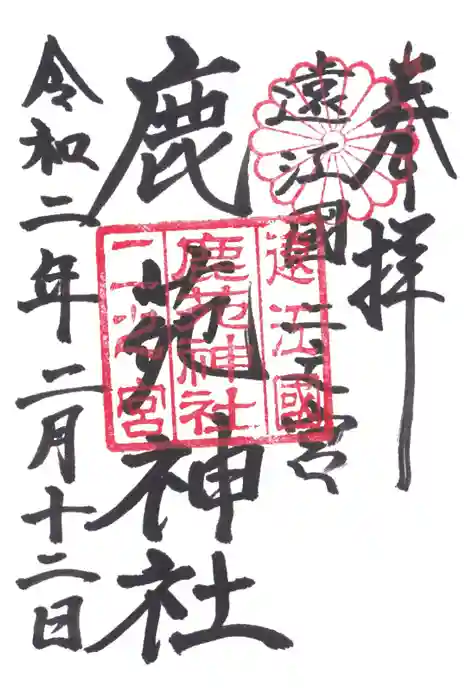 奉拝
遠江國二之宮
鹿苑神社
令和二年二月十二日
遠江國
鹿苑神社
二之宮